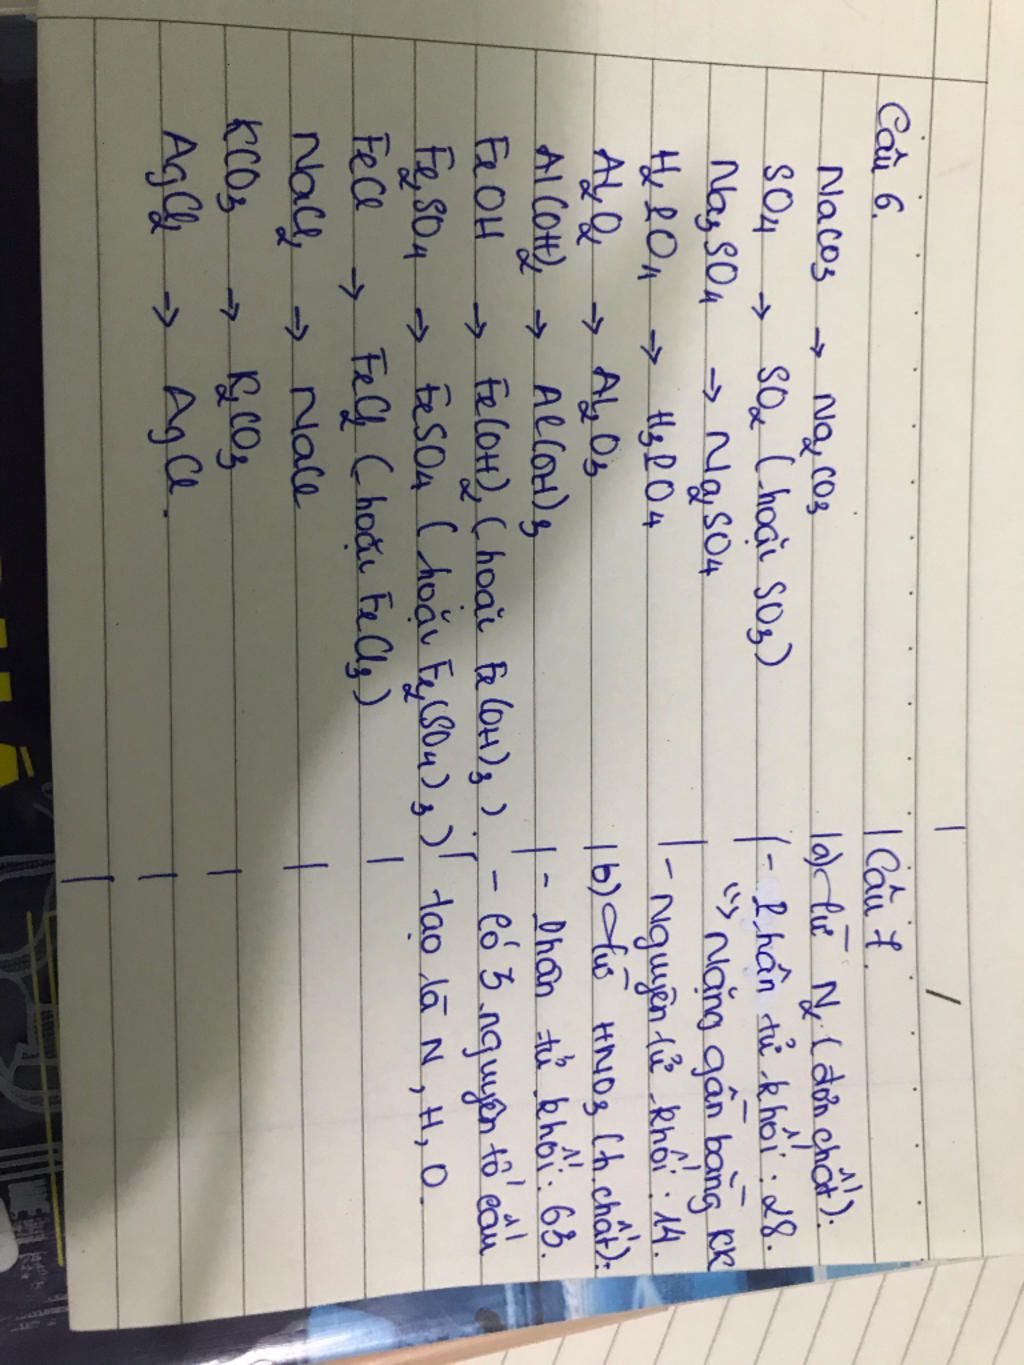 Câu 6.
NaCO3 → Na2CO3
SO4 → SO2 (hoặc SO3)
Na3SO4 → Na2SO4
H2PO4 → H3PO4
Al2O2 → Al2O3
Al(OH)2 → Al(OH)3
FeOH → Fe(OH)2 (hoặc Fe(OH)3).
Fe2SO4 → FeSO4 (hoặc Fe2(SO4)3)
FeCl → FeCl2 (hoặc FeCl3)
NaCl2 → NaCl
KCO3 → K2CO3
AgCl2 → AgCl.
Câu 7.
a) Từ N2 (đơn chất):
- Phân tử khối: 28.
=> Nặng gần bằng KK
- Nguyên tử khối: 14.
b) Từ HNO3 (h.chất):
- Phân tử khối: 63.
- Có 3 nguyên tố cấu
tạo là N, H, O.